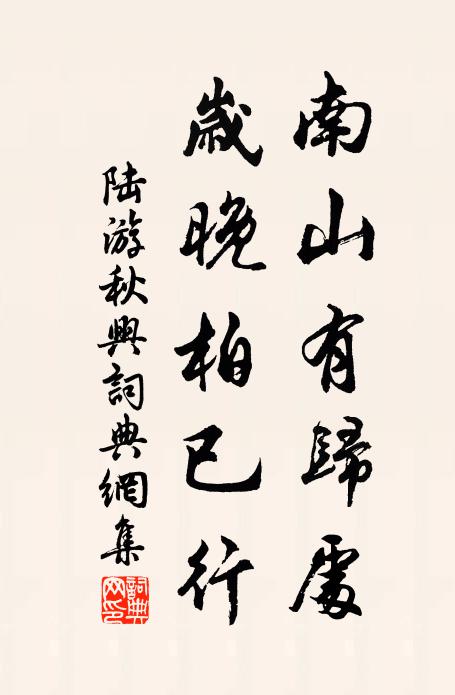 南山有歸處
歲晚柏已行
陆游秋興詞典網集
詞典網印